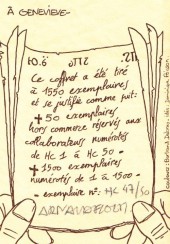 À GENEVIEVE-
Ce coffret a été tiré
à 1550 exemplaires
et se justifie comme suit:
+ 50 exemplaires
hors commerce réservés aux
collaborateurs numérotés
de HC 1 à HC 50 -
+ 1500 exemplaires
numérotés de 1 à 1500 -
- exemplaire n°: HC 47/50